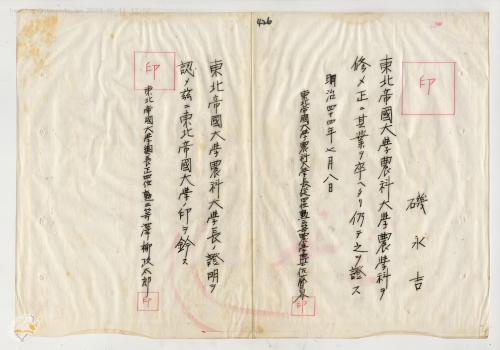 426
印
磯永吉
東北帝國大學農科大學農學科ヲ
修メ正ニ其業ヲ卒ヘタリ仍テ之ヲ證ス
明治四十四年七月八日
東北帝國大學農科大學長從四位勳三等農學博士佐藤昌
印
東北帝國大學農科大學長ノ證明ヲ
認メ茲ニ東北帝國大學ノ印ヲ鈐ス
印
東北帝國大學總長正四位勳二等澤柳政太郎
印